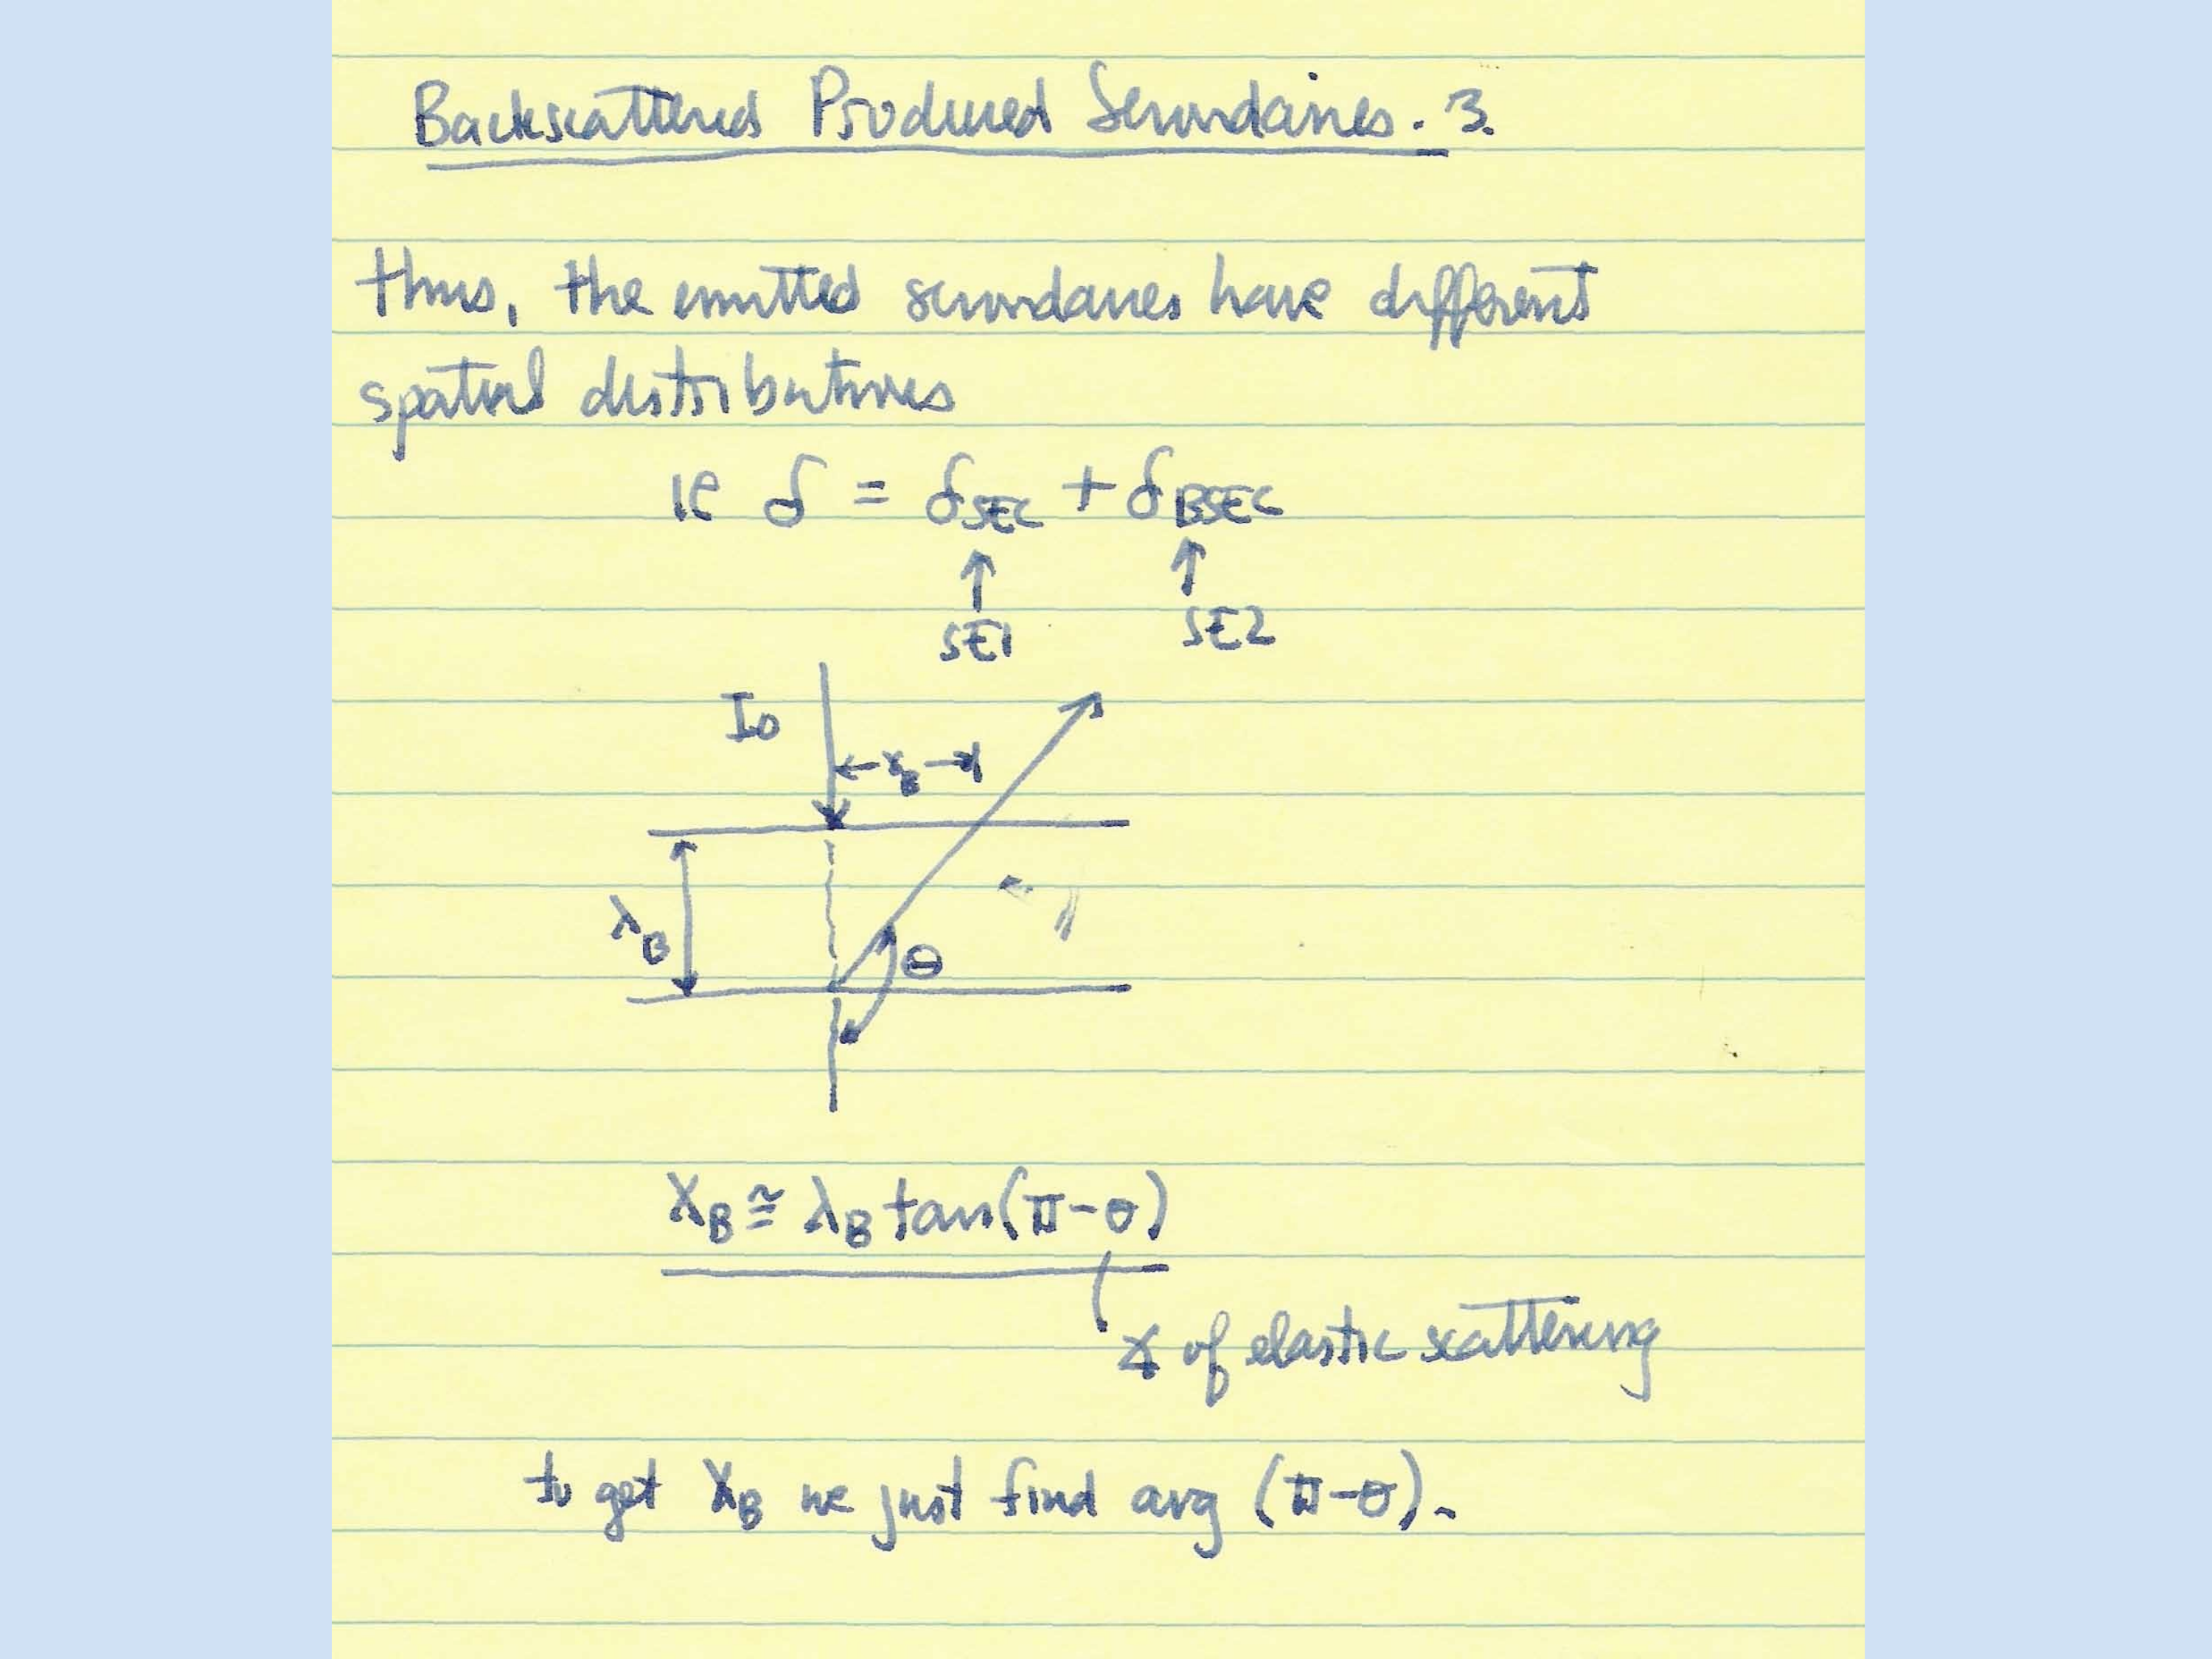 Backscattered Produced Secondaries. 3.
thus, the emitted secondaries have different
spatial distributions
ie δ = δSEC + δBSEC
↑ ↑
SE1 SE2
I0
←xB→
λB
θ
XB ≅ λB tan(π-θ)
∡ of elastic scattering
to get XB we just find avg (π-θ).